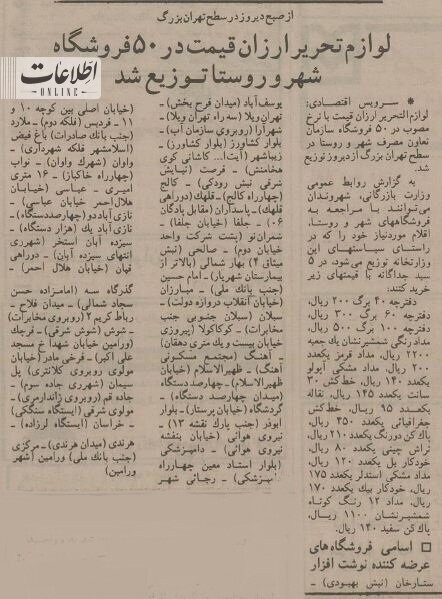 از صبح دیروز در سطح تهران بزرگ
لوازم تحریر ارزان قیمت در ۵۰ فروشگاه
شهر و روستا توزیع شد
اطلاعات
ONLINE
* سرویس اقتصادی:
لوازم التحریر ارزان قیمت با نرخ
مصوب در ۵۰ فروشگاه سازمان
تعاون مصرف شهر و روستا در
تهران بزرگ از دیروز توزیع
شد.
به گزارش روابط عمومی
وزارت بازرگانی، شهروندان
می‌توانند با مراجعه به
فروشگاههای شهر و روستا،
اقلام موردنیاز خود را که در
راستای سیاستهای این
وزارتخانه توزیع می‌شود، در ۵
سبد جداگانه با قیمتهای زیر
خرید کنند:
دفترچه ۴۰ برگ ۲۰۰ ریال،
دفترچه ۶۰ برگ ۳۰۰ ریال،
دفترچه ۱۰۰ برگ ۵۰۰ ریال،
مداد رنگی شمشیرنشان یک جعبه
۲۲۰۰ ریال، مداد قرمز یکعدد
۲۰۰ ریال، مداد مشکی آپولو
یکعدد ۱۴۰ ریال، خط‌کش ۳۰
سانت یکعدد ۱۴۵ ریال، نقاله
یکعدد ۹۵ ریال، خط‌کش
جغرافیائی یکعدد ۴۵۰ ریال،
پاک‌کن دورنگ یکعدد ۲۱۰ ریال،
تراش چینی یکعدد ۸۰ ریال،
خودکار بل یکعدد ۱۲۰ ریال،
مداد مشکی استدلر یکعدد ۱۷۵
ریال، خودکار بیک یکعدد ۱۷۰
ریال، مداد ۱۲ رنگ کوتاه
شمشیرنشان ۱۱۰۰ ریال،
پاک‌کن سفید ۱۴۰ ریال.
□ اسامی فروشگاه‌های
عرضه کننده نوشت افزار
ستارخان (نبش بهبودی) ـ
یوسف‌آباد (میدان فرح بخش) ـ
تهران‌ویلا (سه راه تهران ویلا) ـ
شهرآرا (روبروی سازمان آب) ـ
بلوار کشاورز (بلوار کشاورز) ـ
زیباشهر (آیت‌ا... کاشانی کوی
هخامنش) ـ فرصت (نیایش
شرقی نبش رودکی) ـ کالج
(چهارراه کالج) ـ قلهک (دوراهی
قلهک) ـ پاسداران (مقابل پادگان
۰۶) ـ جلفا (خیابان جلفا) ـ
شمران‌نو (پشت شرکت واحد
میدان دوم) ـ صالحی (نبش
میثاق ۴) بهار شمالی (بالاتر از
بیمارستان شهریار) ـ امام حسین
(جنب بانک ملی) ـ مبارزان
(خیابان انقلاب دروازه دولت) ـ
سبلان (سبلان جنوبی جنب
مخابرات) ـ کوکاکولا (پیروزی
خیابان بیست و یک متری دهقان)
ـ آهنگ (مجتمع مسکونی
آهنگ) ـ ظهیرالاسلام (خیابان
ظهیرالاسلام) ـ چهارصد دستگاه
(میدان چهارصد دستگاه) ـ
گردشگاه (خیابان پرستار) ـ بلوار
ابوذر (جنب پارک نقشه ۱۳) ـ
نیروی هوائی (خیابان بنفشه
نیروی هوائی) ـ دامپزشکی
(بلوار استاد معین چهارراه
دامپزشکی) ـ رجائی شهر
(خیابان اصلی بین کوچه ۱۰ و
۱۱ ـ فردیس (فلکه دوم) ـ ملارد
(جنب بانک صادرات) باغ فیض
(اسلامشهر فلکه شهرداری) ـ
واوان (شهرک واوان) ـ نواب
(چهارراه خاکباز) ـ ۱۶ متری
امیری ـ عباسی (خیابان
هلال‌احمر خیابان عباسی) ـ
نازی‌آباد دو (چهارصددستگاه) ـ
نازی‌آباد یک (هزار دستگاه) ـ
سیزده آبان استخر (شهرری
انتهای سیزده آبان) ـ دوراهی
قپان (خیابان هلال احمر) ـ
گذرگاه سه (امامزاده حسن
سجاد شمالی) ـ میدان فلاح ـ
رباط کریم ۲ (روبروی مخابرات)
ـ شوش (شوش شرقی) ـ قرچک
(ورامین خیابان شهدا خ مسجد
علی اکبر) ـ فرخی مادر (خیابان
مولوی روبروی کلانتری) پل
سیمان (شهرری جاده سوم) ـ
جاده قم (روبروی ژاندارمری) ـ
مولوی شرقی (ایستگاه سنگکی)
ـ خراسان (ایستگاه لرزاده) ـ
هرندی (میدان هرندی) ـ مرکزی
(جنب بانک ملی) ورامین (شهر
ورامین)